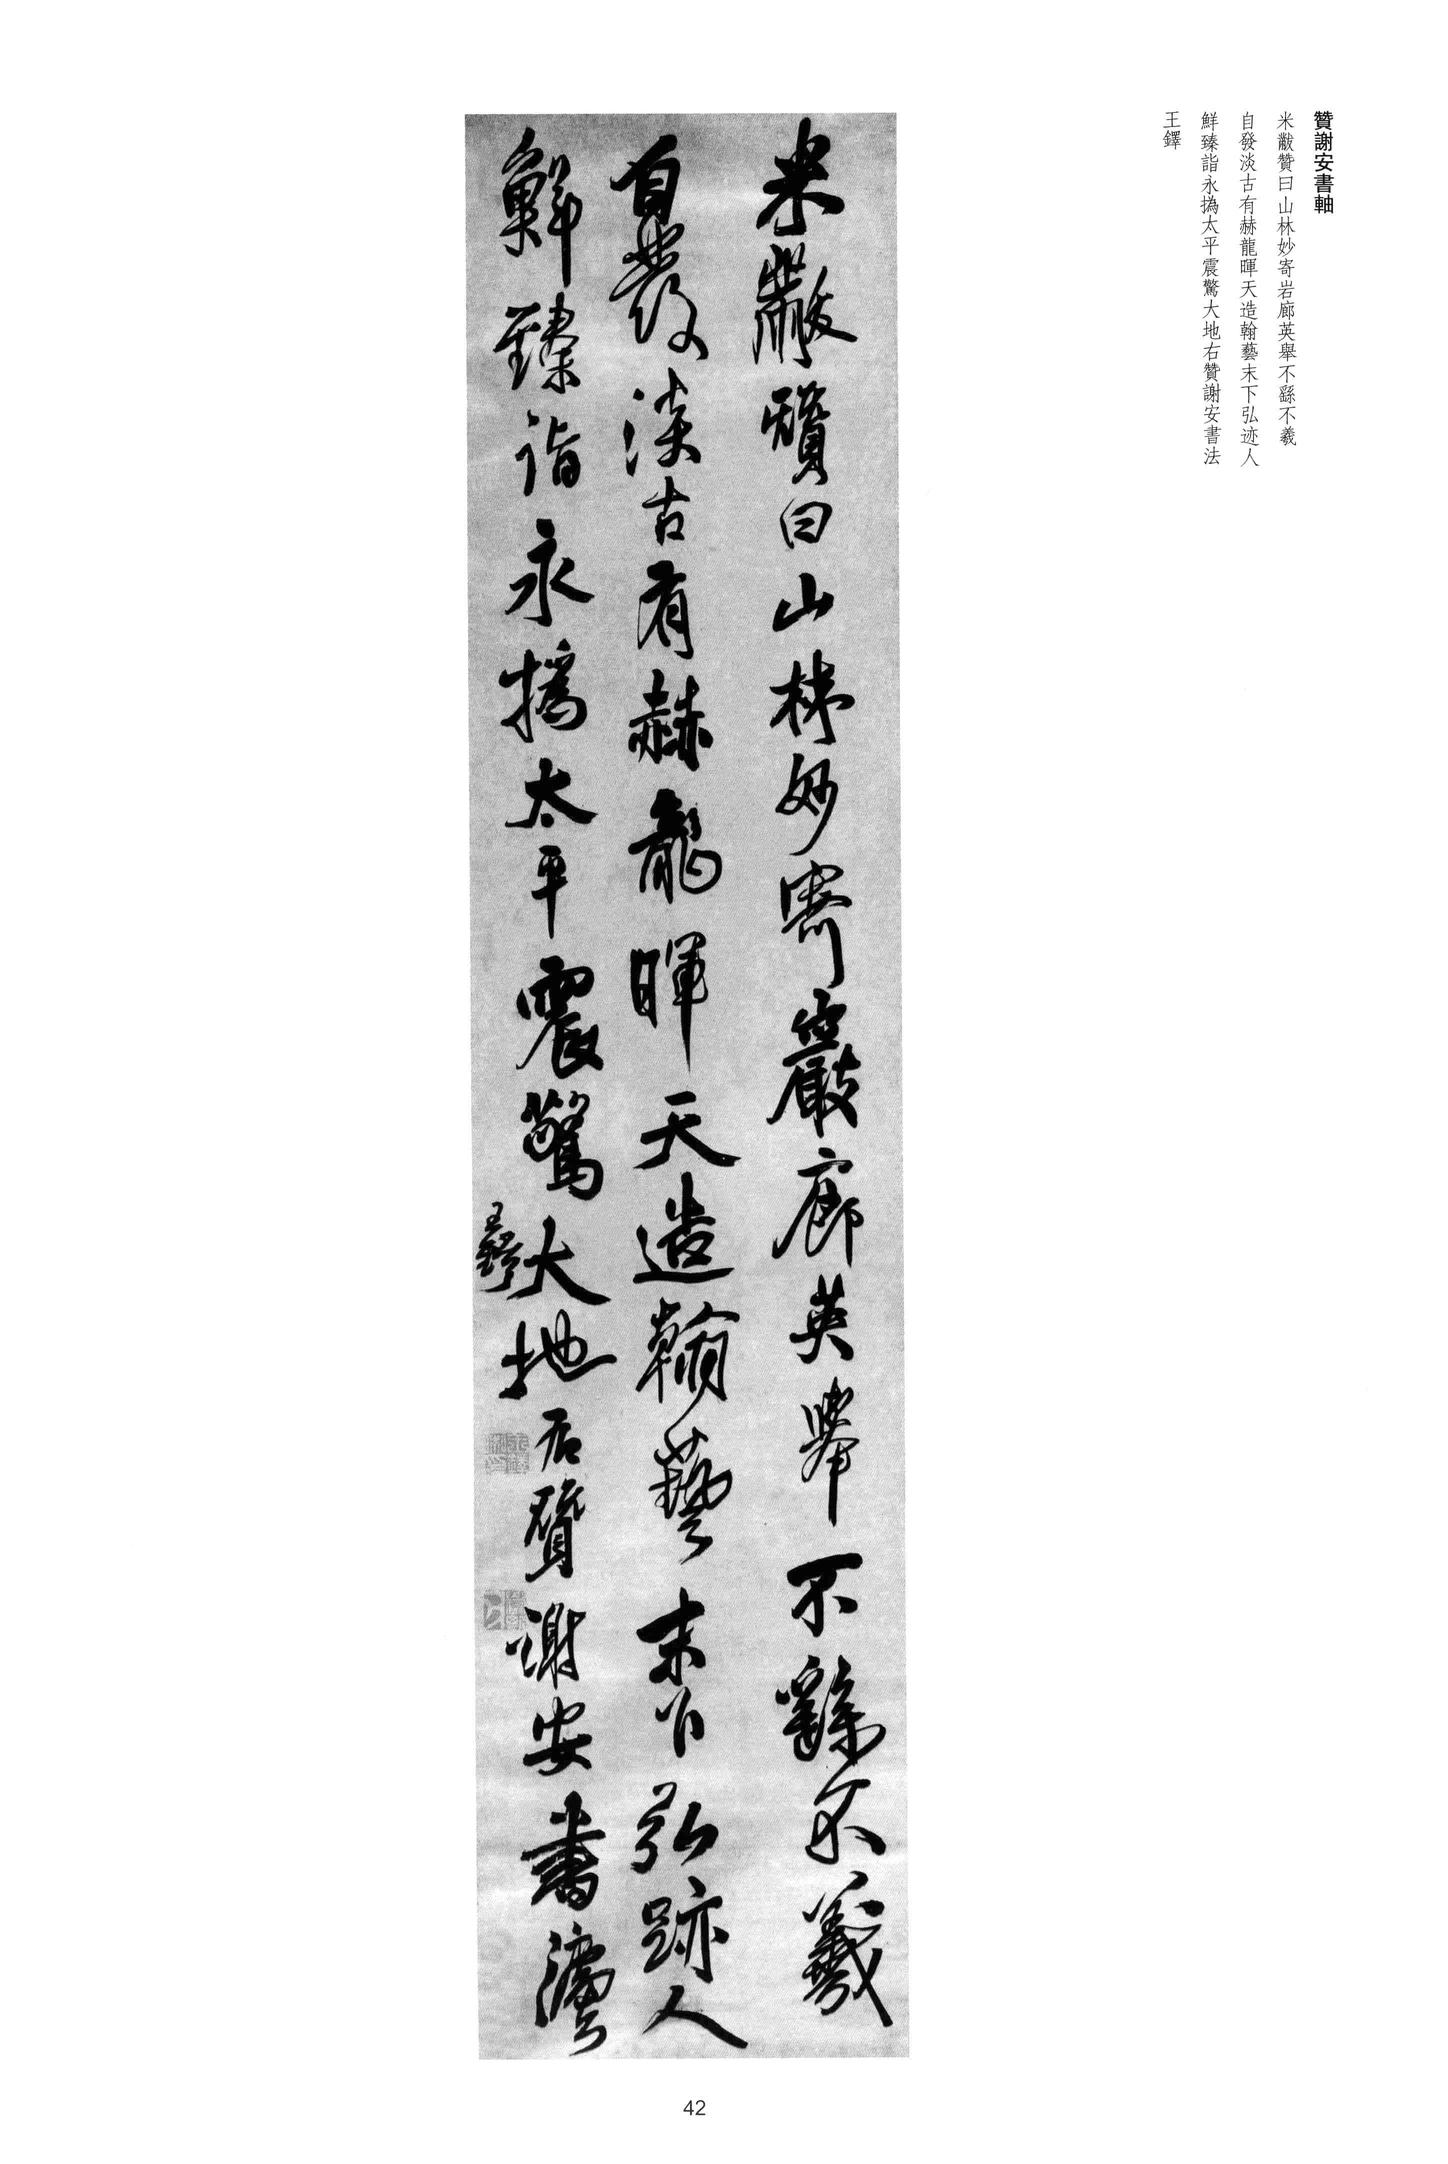 贊謝安書軸
米黻贊曰山林妙寄岩廊英舉不繇不羲
自發淡古有赫龍暉天造翰藝末下弘迹人
鮮臻詣永撝太平震驚大地右贊謝安書法
王鐸
米黻贊曰山林妙寄巖廊英舉不繇不羲
自發淡古有赫龍暉天造翰藝末下弘跡人
鮮臻詣永撝太平震驚大地右贊謝安書灋
王鐸
42